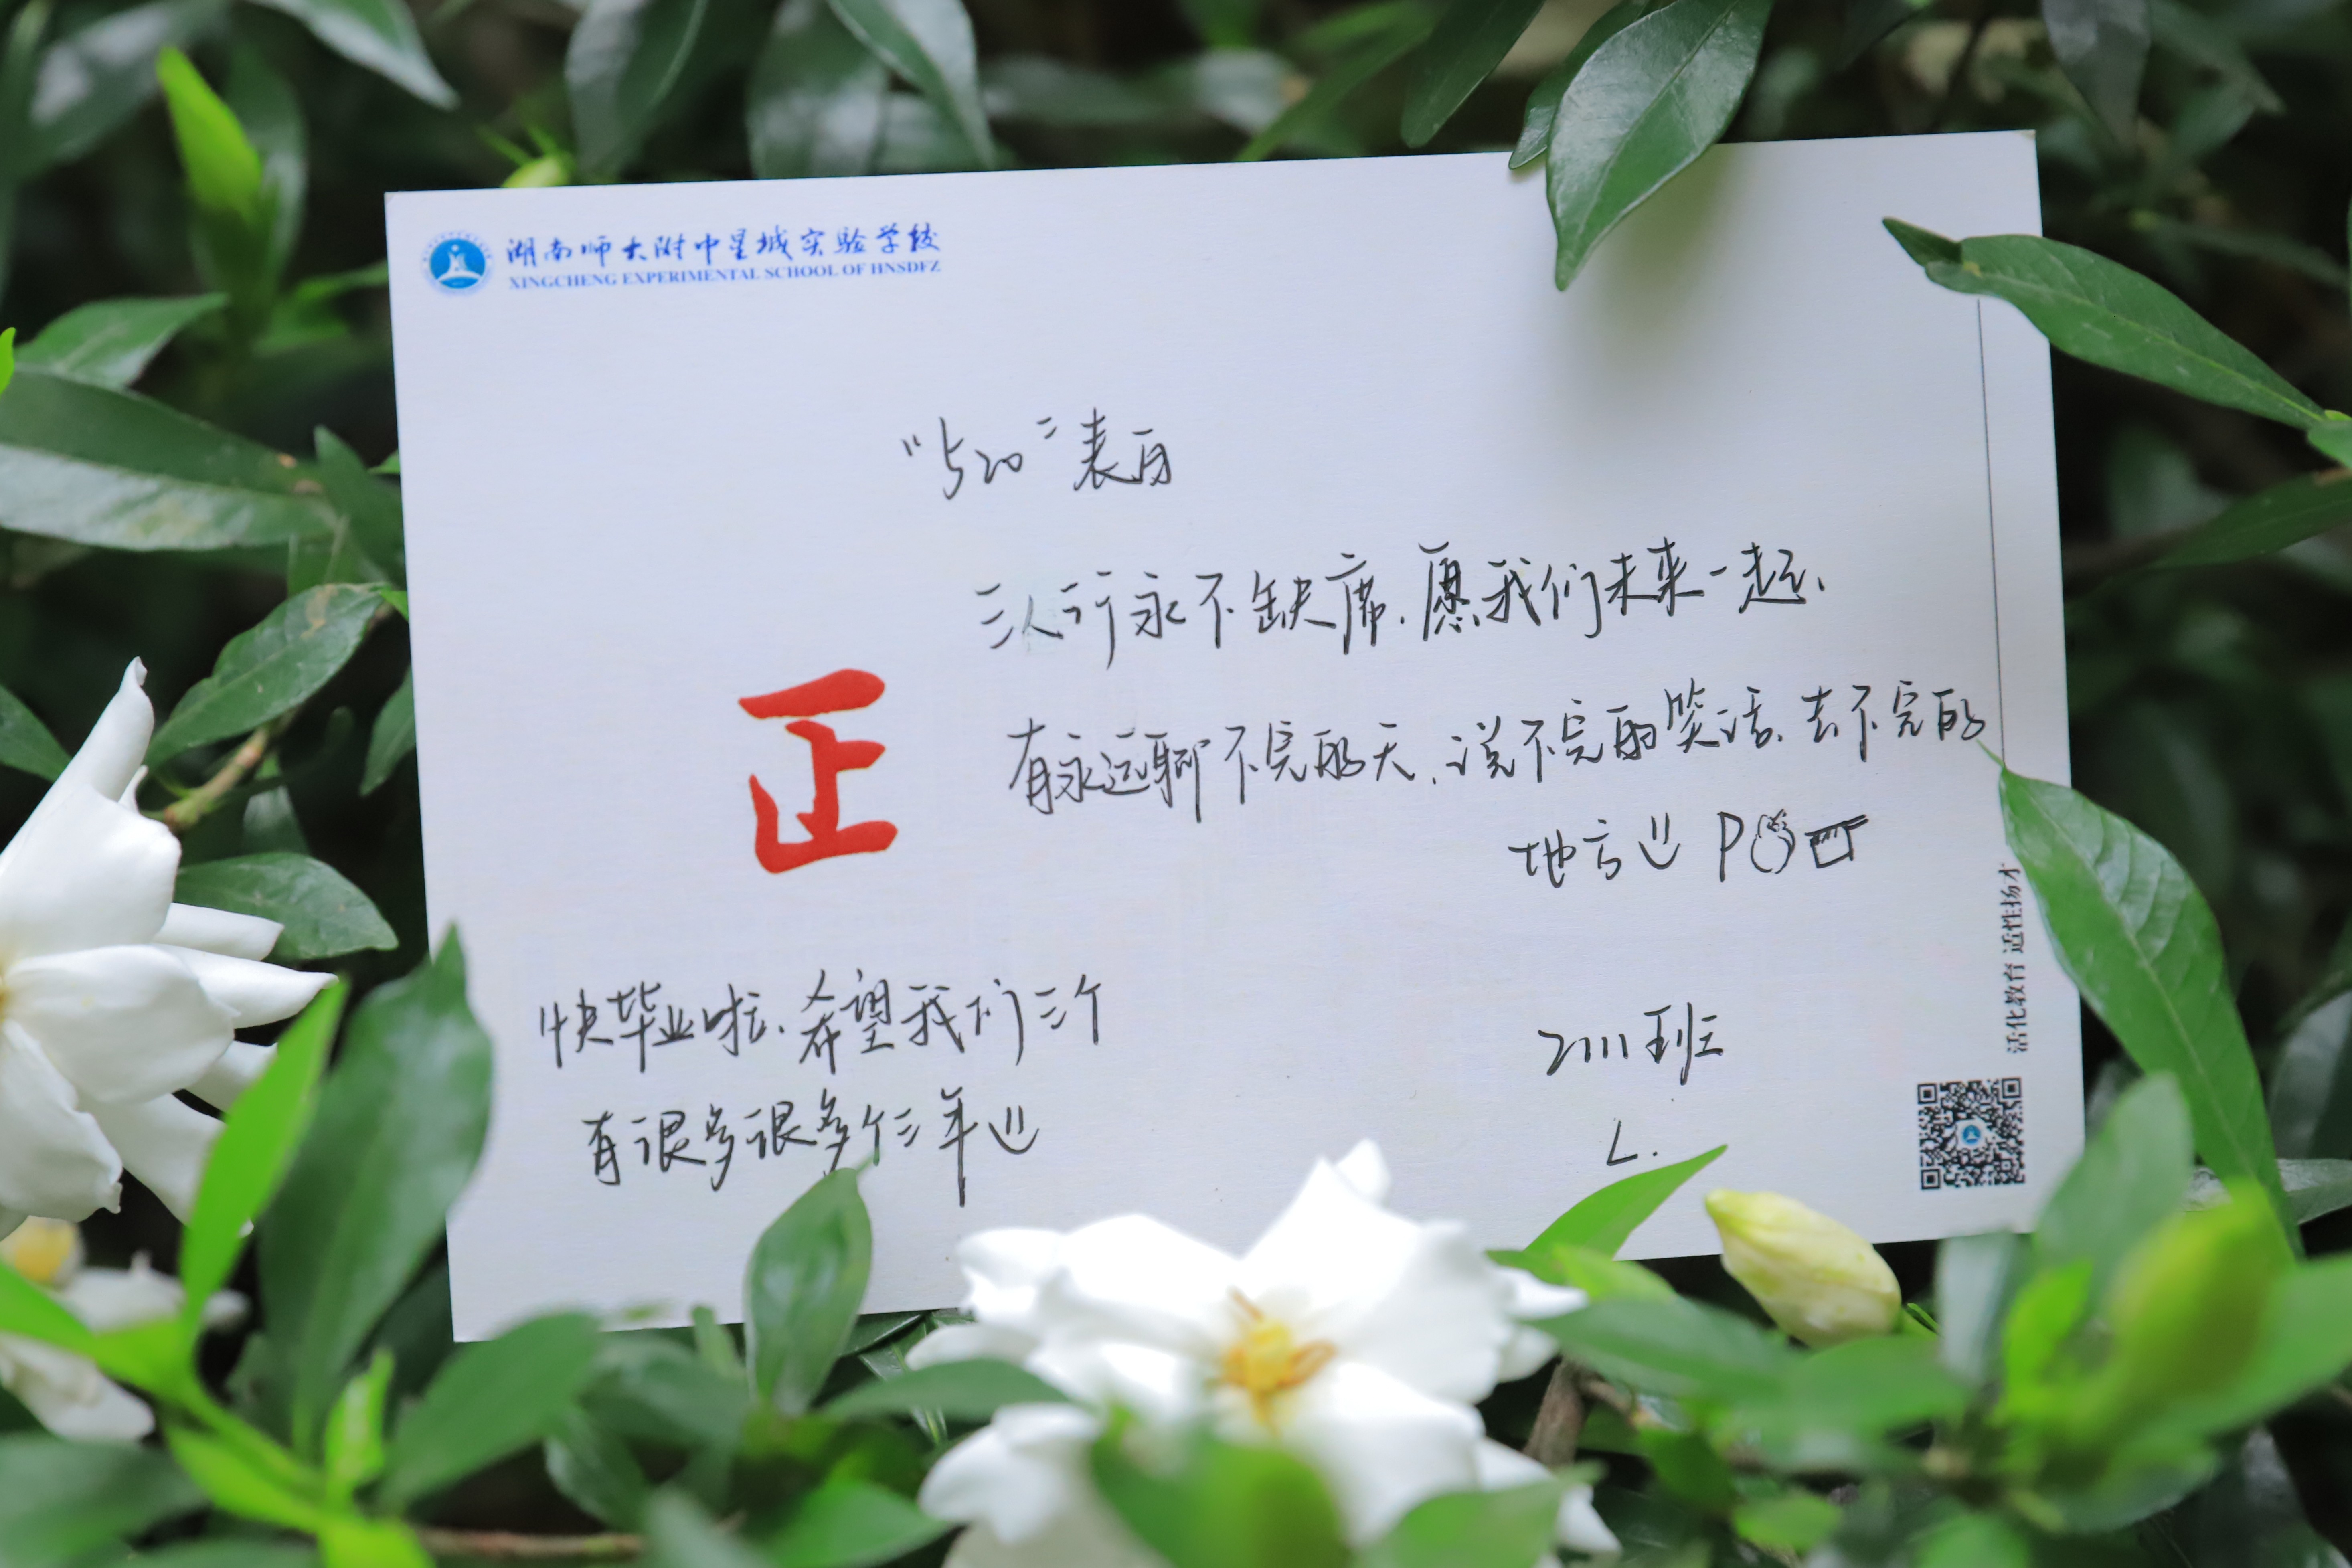 湖南师大附中星城实验学校
XINGCHENG EXPERIMENTAL SCHOOL OF HNSDFZ
“520”表白
三人行永不缺席，愿我们未来一起，
有永远聊不完的天，说不完的笑话，去不完的
地方 P
正
快毕业啦，希望我们三个
有很多很多个三年
2111班
L.
活化教育 适性扬才